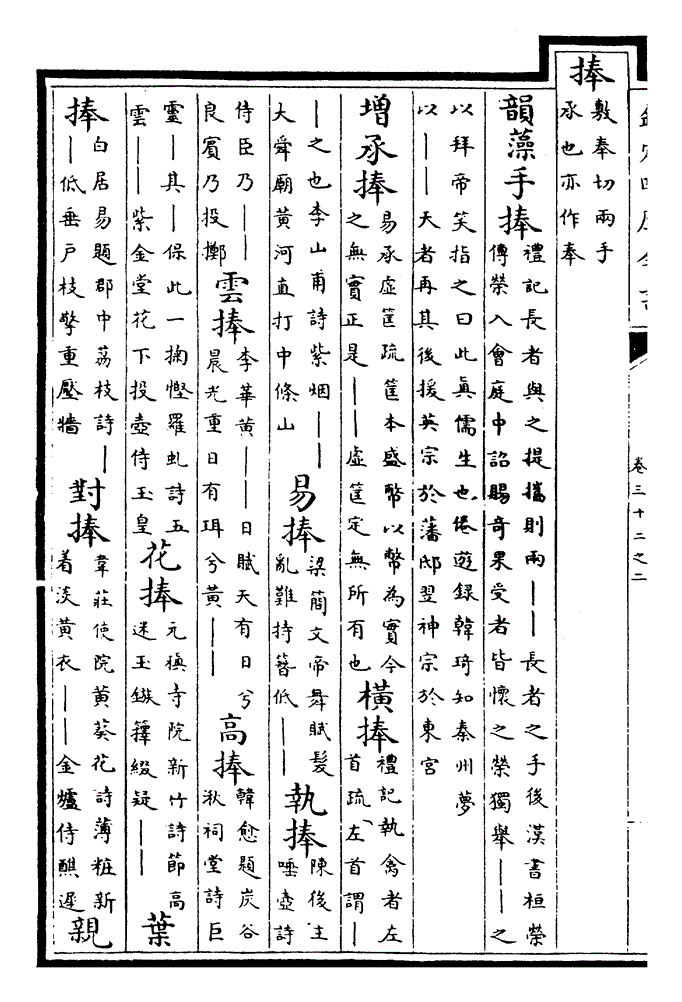 卷三十二之二
捧
敷奉切兩手
承也亦作奉
韻藻手捧
禮記長者與之提攜則兩——長者之手後漢書桓榮
傳榮入會庭中詔賜奇果受者皆懷之榮獨舉——之
以拜帝笑指之曰此真儒生也倦遊録韓琦知秦州夢
以——天者再其後援英宗於藩邸翌神宗於東宮
增承捧
易承虛筐疏筐本盛幣以幣為實今
之無實正是——虛筐定無所有也
橫捧
禮記執禽者左
首疏左首謂—
—之也李山甫詩紫烟——
大舜廟黃河直打中條山
易捧
梁簡文帝舞賦髮
亂難持簪低——
執捧
陳後主
唾壺詩
侍臣乃——
良賓乃投擲
雲捧
李華黃——日賦天有日兮
晨光重日有珥兮黃——
高捧
韓愈題炭谷
湫祠堂詩巨
靈—其—保此一掬慳羅虬詩五
雲——紫金堂花下投壺侍玉皇
花捧
元稹寺院新竹詩節高
迷玉鏃籜綴疑——
葉
捧
白居易題郡中荔枝詩—
—低垂户枝擎重壓牆
對捧
韋莊使院黃葵花詩薄粧新
着淡黃衣——金爐侍醮遲
親